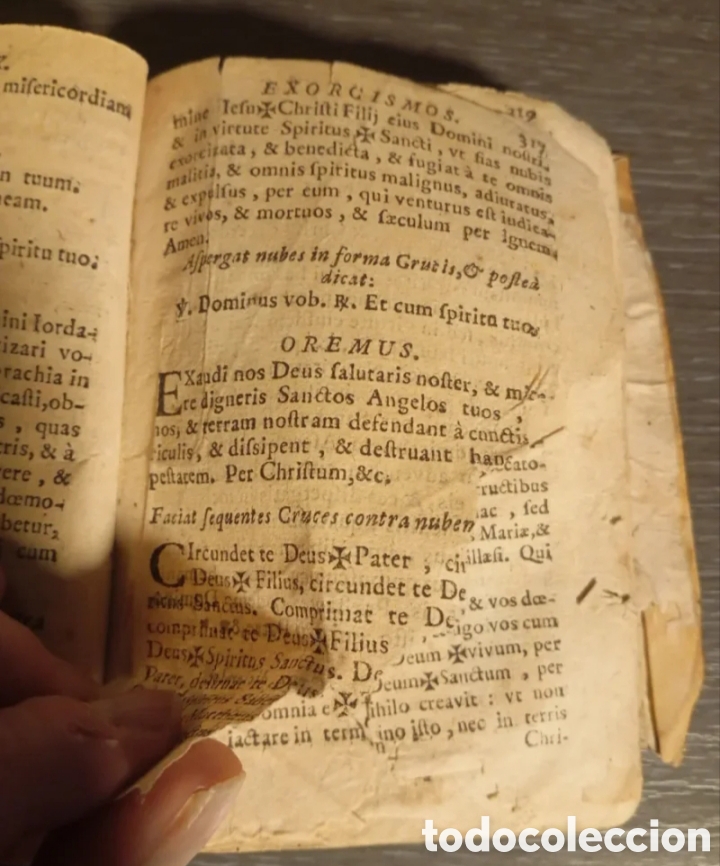 misericordiam
n tuum.
eam.
piritu tuo.
ini Iorda-
izari vo-
rachia in
casti, ob-
, quas
ris, & à
ere, &
dœmo-
betur,
cum
EXORCISMOS. 219
317
mine Iesu✠Christi Filij eius Domini nostri
& in virtute Spiritus✠Sancti, vt fias nubis
exorcizata, & benedicta, & fugiat à te omnis
malitia, & omnis spiritus malignus, adiuratus,
& expulsus, per eum, qui venturus est iudica-
re vivos, & mortuos, & sæculum per Ignem
Amen.
Aspergat nubes in forma Crucis, & posteà
dicat:
℣. Dominus vob. ℟. Et cum spiritu tuo,
OREMUS.
EXaudi nos Deus salutaris noster, & mit-
re digneris Sanctos Angelos tuos,
nos, & terram nostram defendant à cunctis
riculis, & dissipent, & destruant hanc
pestatem. Per Christum, &c.
Faciat sequentes Cruces contra nuben
CIrcundet te Deus✠Pater, cir
Deus✠Filius, circundet te De
Sanctus. Comprimat te De
comprimat te Deus✠Filius
Deus✠Spiritus Sanctus. De
Pater, destruat te Deus
cato-
ructibus
ac, sed
Mariæ, &
illæsi. Qui
& vos dœ-
igo vos cum
eum✠vivum, per
eum✠Sanctum, per
omnia e✠ihilo creavit: vt non
iactare in termino isto, nec in terris
Chri-
todocoleccion